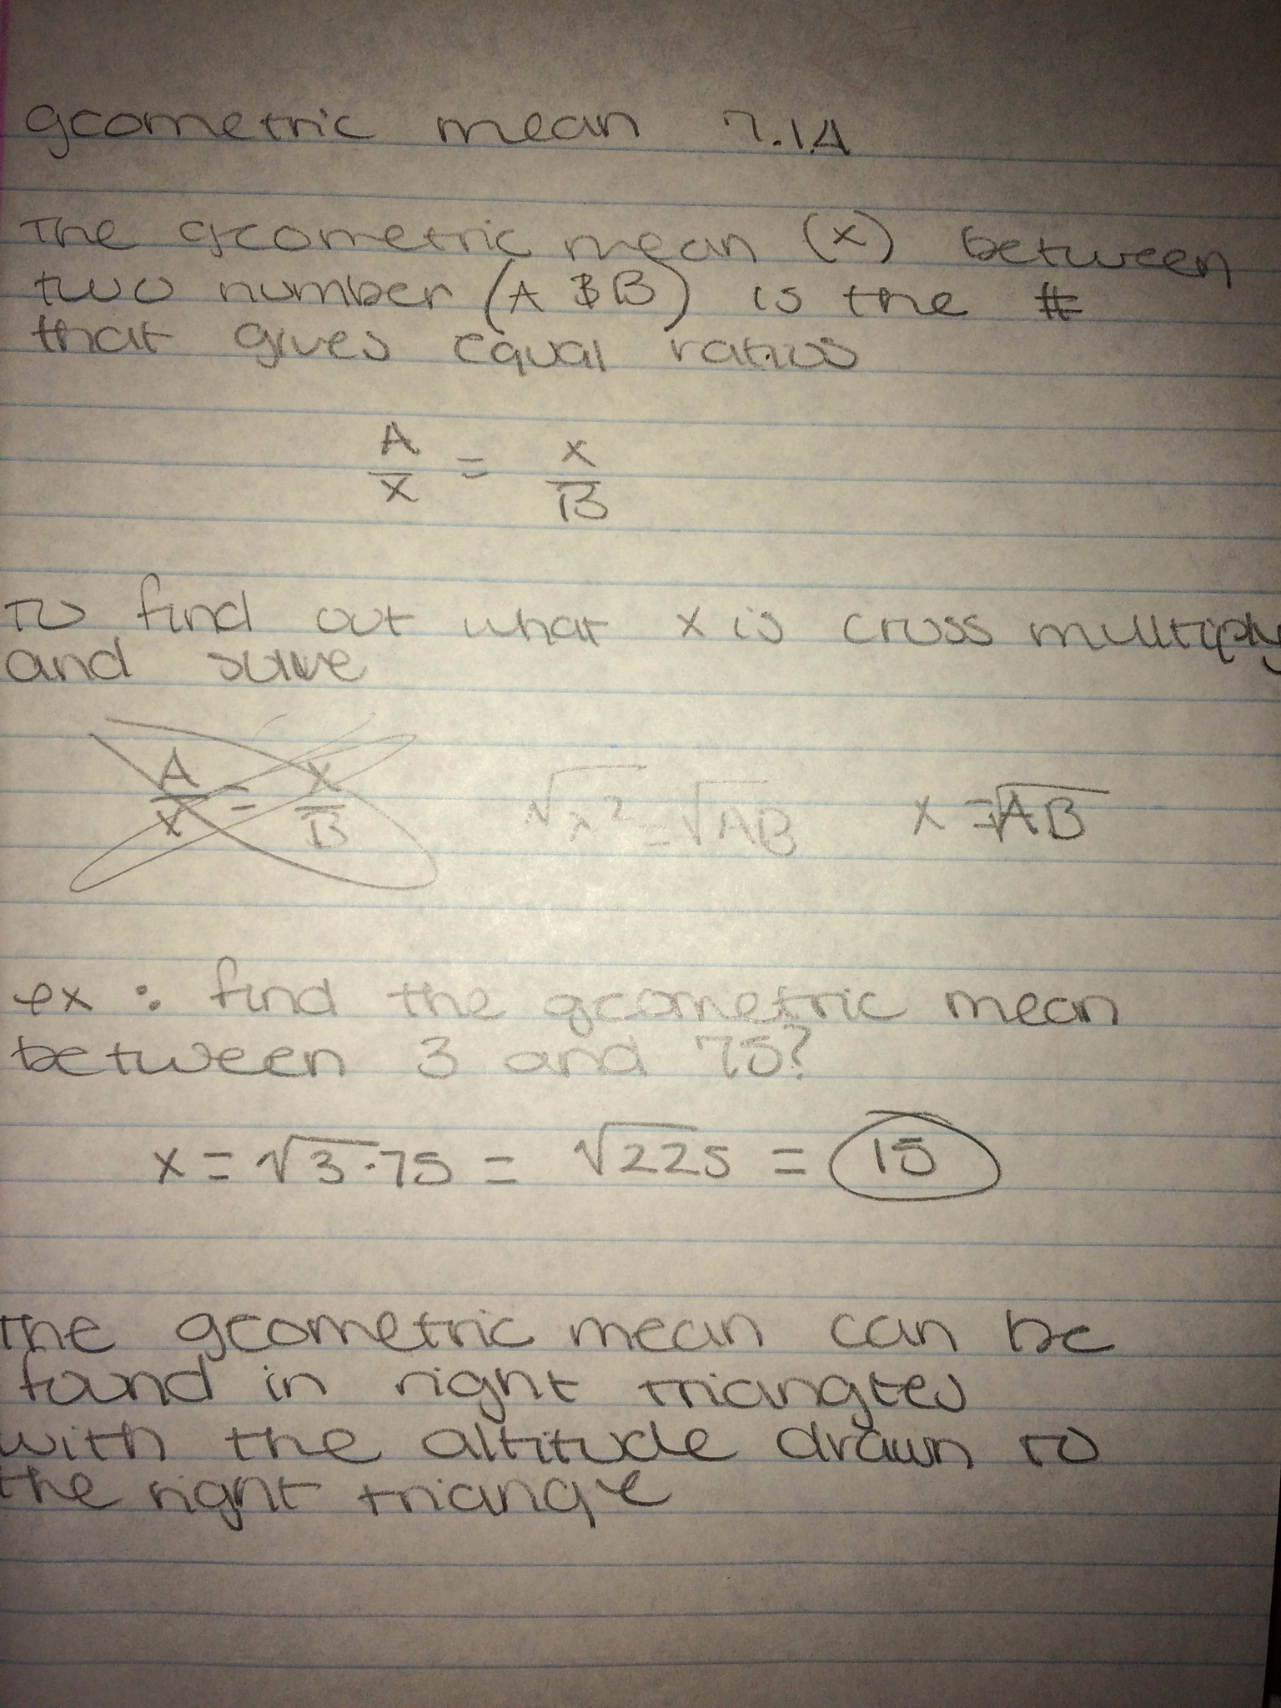 geometric mean 7.1A
The geometric mean (x) between
two number (A & B) is the #
that gives equal ratios
A/x = x/B
To find out what x is cross multiply
and solve
A/x = x/B √x² = √AB x = √AB
ex: find the geometric mean
between 3 and 75?
x = √3·75 = √225 = 15
The geometric mean can be
found in right triangles
with the altitude drawn to
the right triangle